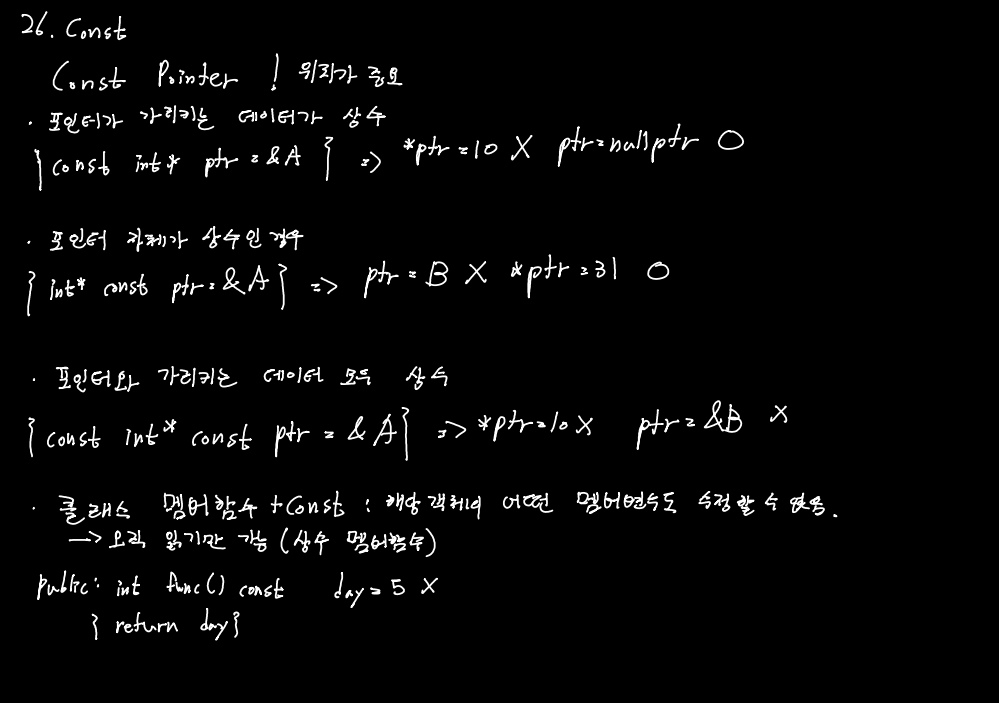 26. Const
Const Pointer ! 위치가 중요
· 포인터가 가리키는 데이터가 상수
{ const int* ptr = &A } => *ptr = 10 X ptr = nullptr O
· 포인터 자체가 상수인 경우
{ int* const ptr = &A } => ptr = B X *ptr = 31 O
· 포인터와 가리키는 데이터 모두 상수
{ const int* const ptr = &A } => *ptr = 10 X ptr = &B X
· 클래스 멤버함수 + Const : 해당 객체의 어떤 멤버변수도 수정할 수 없음.
-> 오직 읽기만 가능 (상수 멤버함수)
public: int func() const day = 5 X
{ return day }